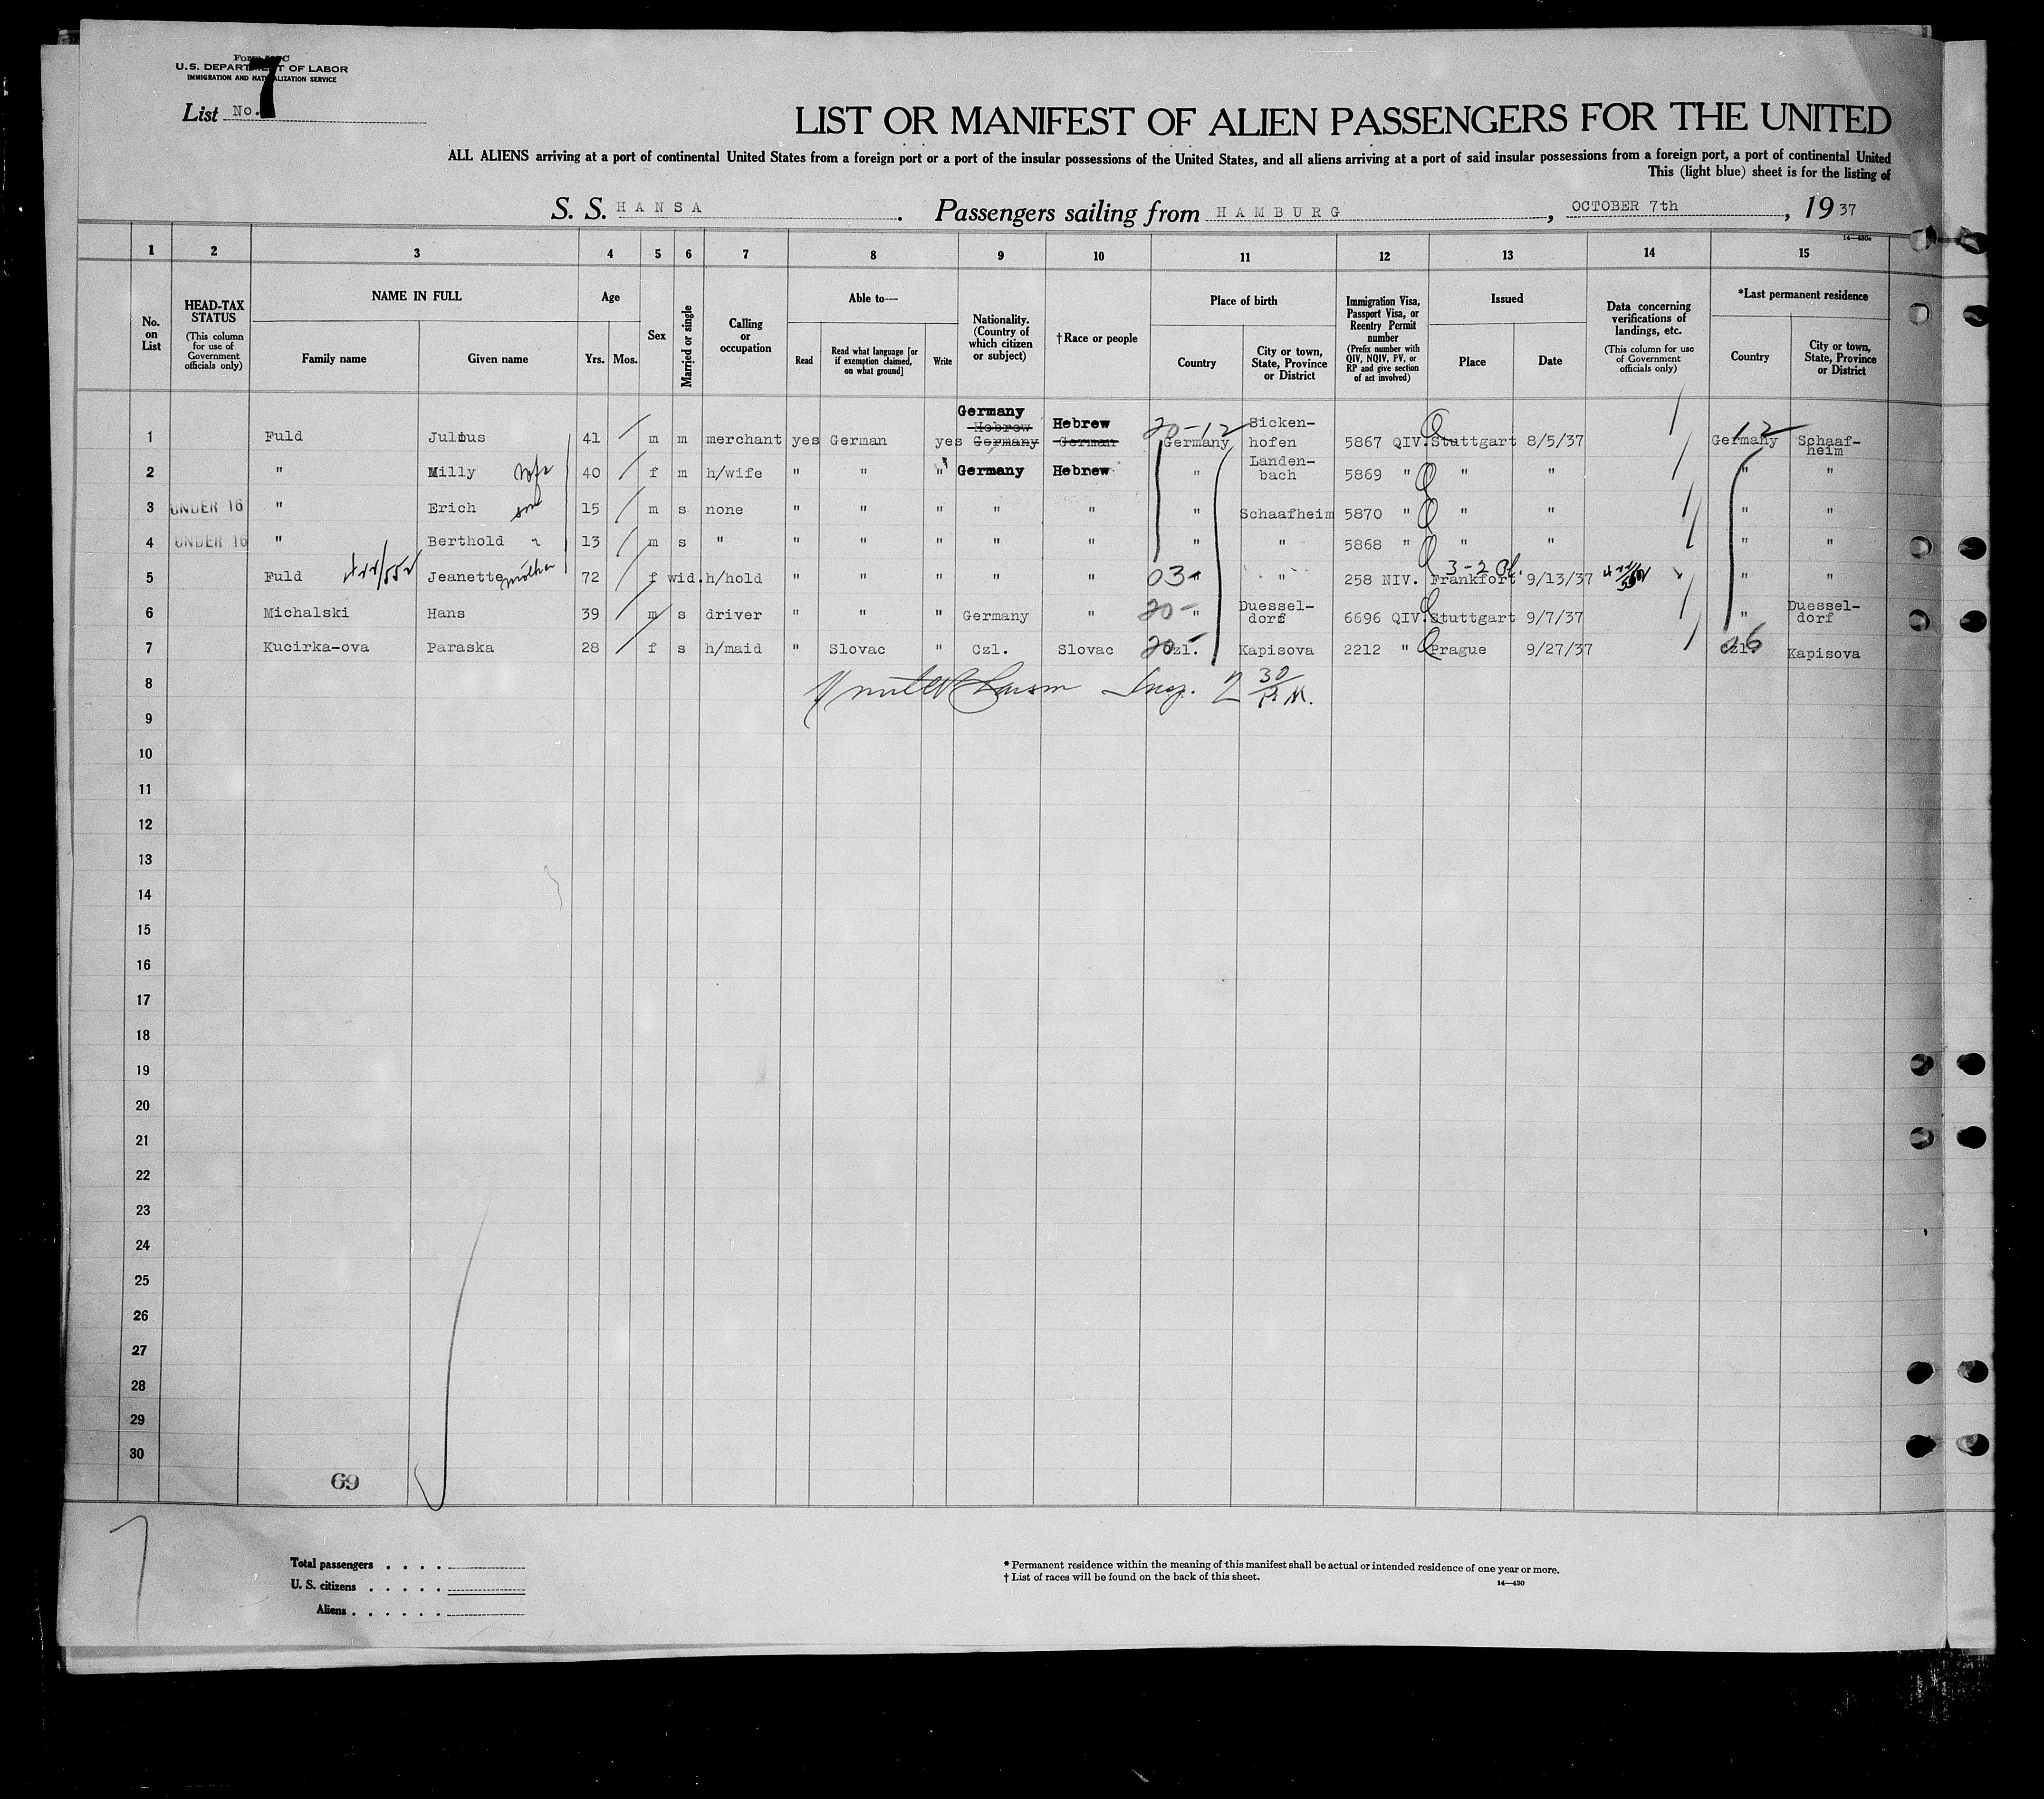 U.S. DEPARTMENT OF LABOR
IMMIGRATION AND NATURALIZATION SERVICE
List No. 7
LIST OR MANIFEST OF ALIEN PASSENGERS FOR THE UNITED
ALL ALIENS arriving at a port of continental United States from a foreign port or a port of the insular possessions of the United States, and all aliens arriving at a port of said insular possessions from a foreign port, a port of continental United
This (light blue) sheet is for the listing of
S. S. HANSA. Passengers sailing from HAMBURG, OCTOBER 7th, 19 37
14—430c
1 2 3 4 5 6 7 8 9 10 11 12 13 14 15
No. on List
HEAD-TAX STATUS (This column for use of Government officials only)
NAME IN FULL
Family name
Given name
Age
Yrs. Mos.
Sex
Married or single
Calling or occupation
Able to—
Read
Read what language [or if exemption claimed, on what ground]
Write
Nationality. (Country of which citizen or subject)
† Race or people
Place of birth
Country
City or town, State, Province or District
Immigration Visa, Passport Visa, or Reentry Permit number (Prefix number with QIV, NQIV, PV, or RP and give section of act involved)
Issued
Place
Date
Data concerning verifications of landings, etc. (This column for use of Government officials only)
*Last permanent residence
Country
City or town, State, Province or District
Germany Hebrew 20-12 Sicken- 12
1 Fuld Julius 41 m m merchant yes German yes Hebrew Germany German Germany hofen 5867 QIV. Stuttgart 8/5/37 Germany Schaaf-heim
2 " Milly wife 40 f m h/wife " " " Germany Hebrew " Landen-bach 5869 " " " " "
3 UNDER 16 " Erich son 15 m s none " " " " " " Schaafheim 5870 " " " " "
4 UNDER 16 " Berthold " 13 m s " " " " " " " " 5868 " " " " "
5 Fuld Jeanette mother 72 f wid. h/hold " " " " " 03- " " 258 NIV. 3-2 Frankfort 9/13/37 " "
6 Michalski Hans 39 m s driver " " " Germany " 20- " Duessel-dorf 6696 QIV. Stuttgart 9/7/37 " Duessel-dorf
7 Kucirka-ova Paraska 28 f s h/maid " Slovac " Czl. Slovac 20- Czl. Kapisova 2212 " Prague 9/27/37 Czl. 26 Kapisova
8 Insp. 2 30 P.M.
9
10
11
12
13
14
15
16
17
18
19
20
21
22
23
24
25
26
27
28
29
30
69
7
Total passengers . . . .
U. S. citizens . . . . .
Aliens . . . . . .
* Permanent residence within the meaning of this manifest shall be actual or intended residence of one year or more.
† List of races will be found on the back of this sheet.
14—430